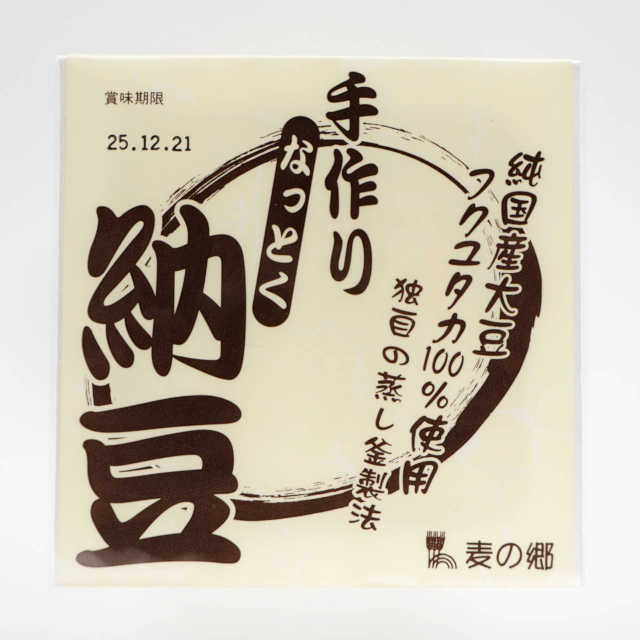 賞味期限
25.12.21
手作り
なっとく
納豆
純国産大豆
フクユタカ100%使用
独自の蒸し釜製法
麦の郷